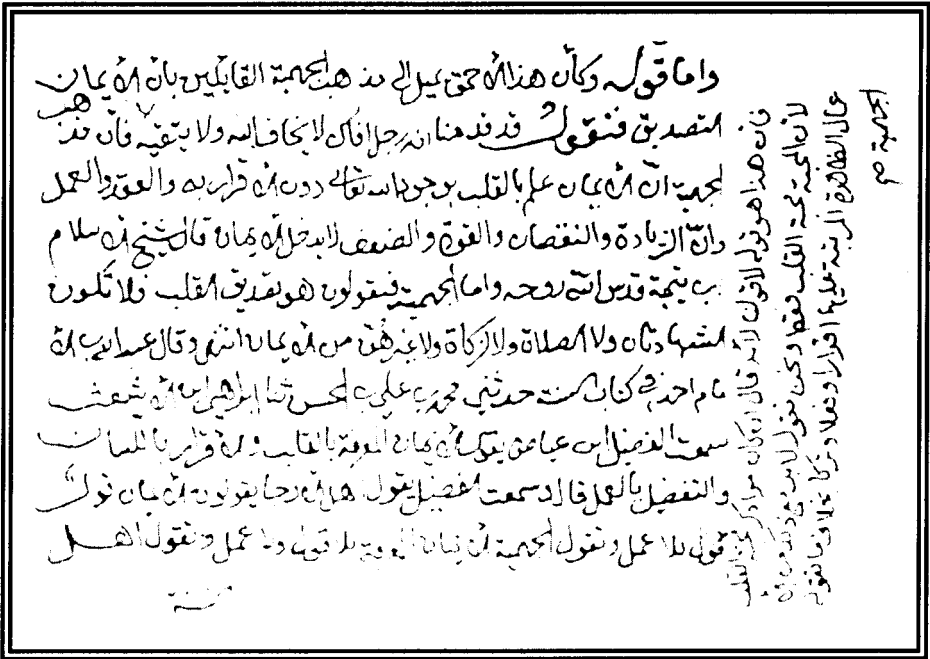 واما قوله وكأن هذا الاحمق يميل الى مذهب الجهمية القايلين بان الايمان
التصديق فنقول قد قدمنا انه رجل افاك لا يخاف الله ولا يتقيه فان مذهب
الجهمية ان الايمان علم بالقلب بوجود الله تعالى دون الاقرار به والعقد والعمل
وان الزيادة والنقصان والقوة والضعف لا يدخل الايمان قال شيخ الاسلام
بن تيمية قدس الله روحه واما الجهمية فيقولون هو تصديق القلب فلا تكون
الشهادتان ولا الصلاة ولا الزكاة ولا غيرهن من الايمان انتهى وقال عبد الله بن الا
مام احمد في كتاب السنة حدثني محمد بن علي بن الحسن ثنا ابراهيم ابن الاشعث
سمعت الفضيل ابن عياض يقول الايمان المعرفة بالقلب والاقرار باللسان
والتفضيل بالعمل قال وسمعت الفضيل يقول اهل الارجا يقولون الايمان قول
قول بلا عمل وتقول الجهمية الايمان المعرفة بلا قول ولا عمل ونقول اهل
السنة
فان هذا هو قوله لا قول لانه قال ان كان مراد القلب
لان المحبة محبة القلب فقط ونحن نقول لا بد مع ذلك من الا
عمال الظاهرة المرتبة عليها اقرارا وفعلا وتركا بخلاف ما تقوله
الجهمية صح